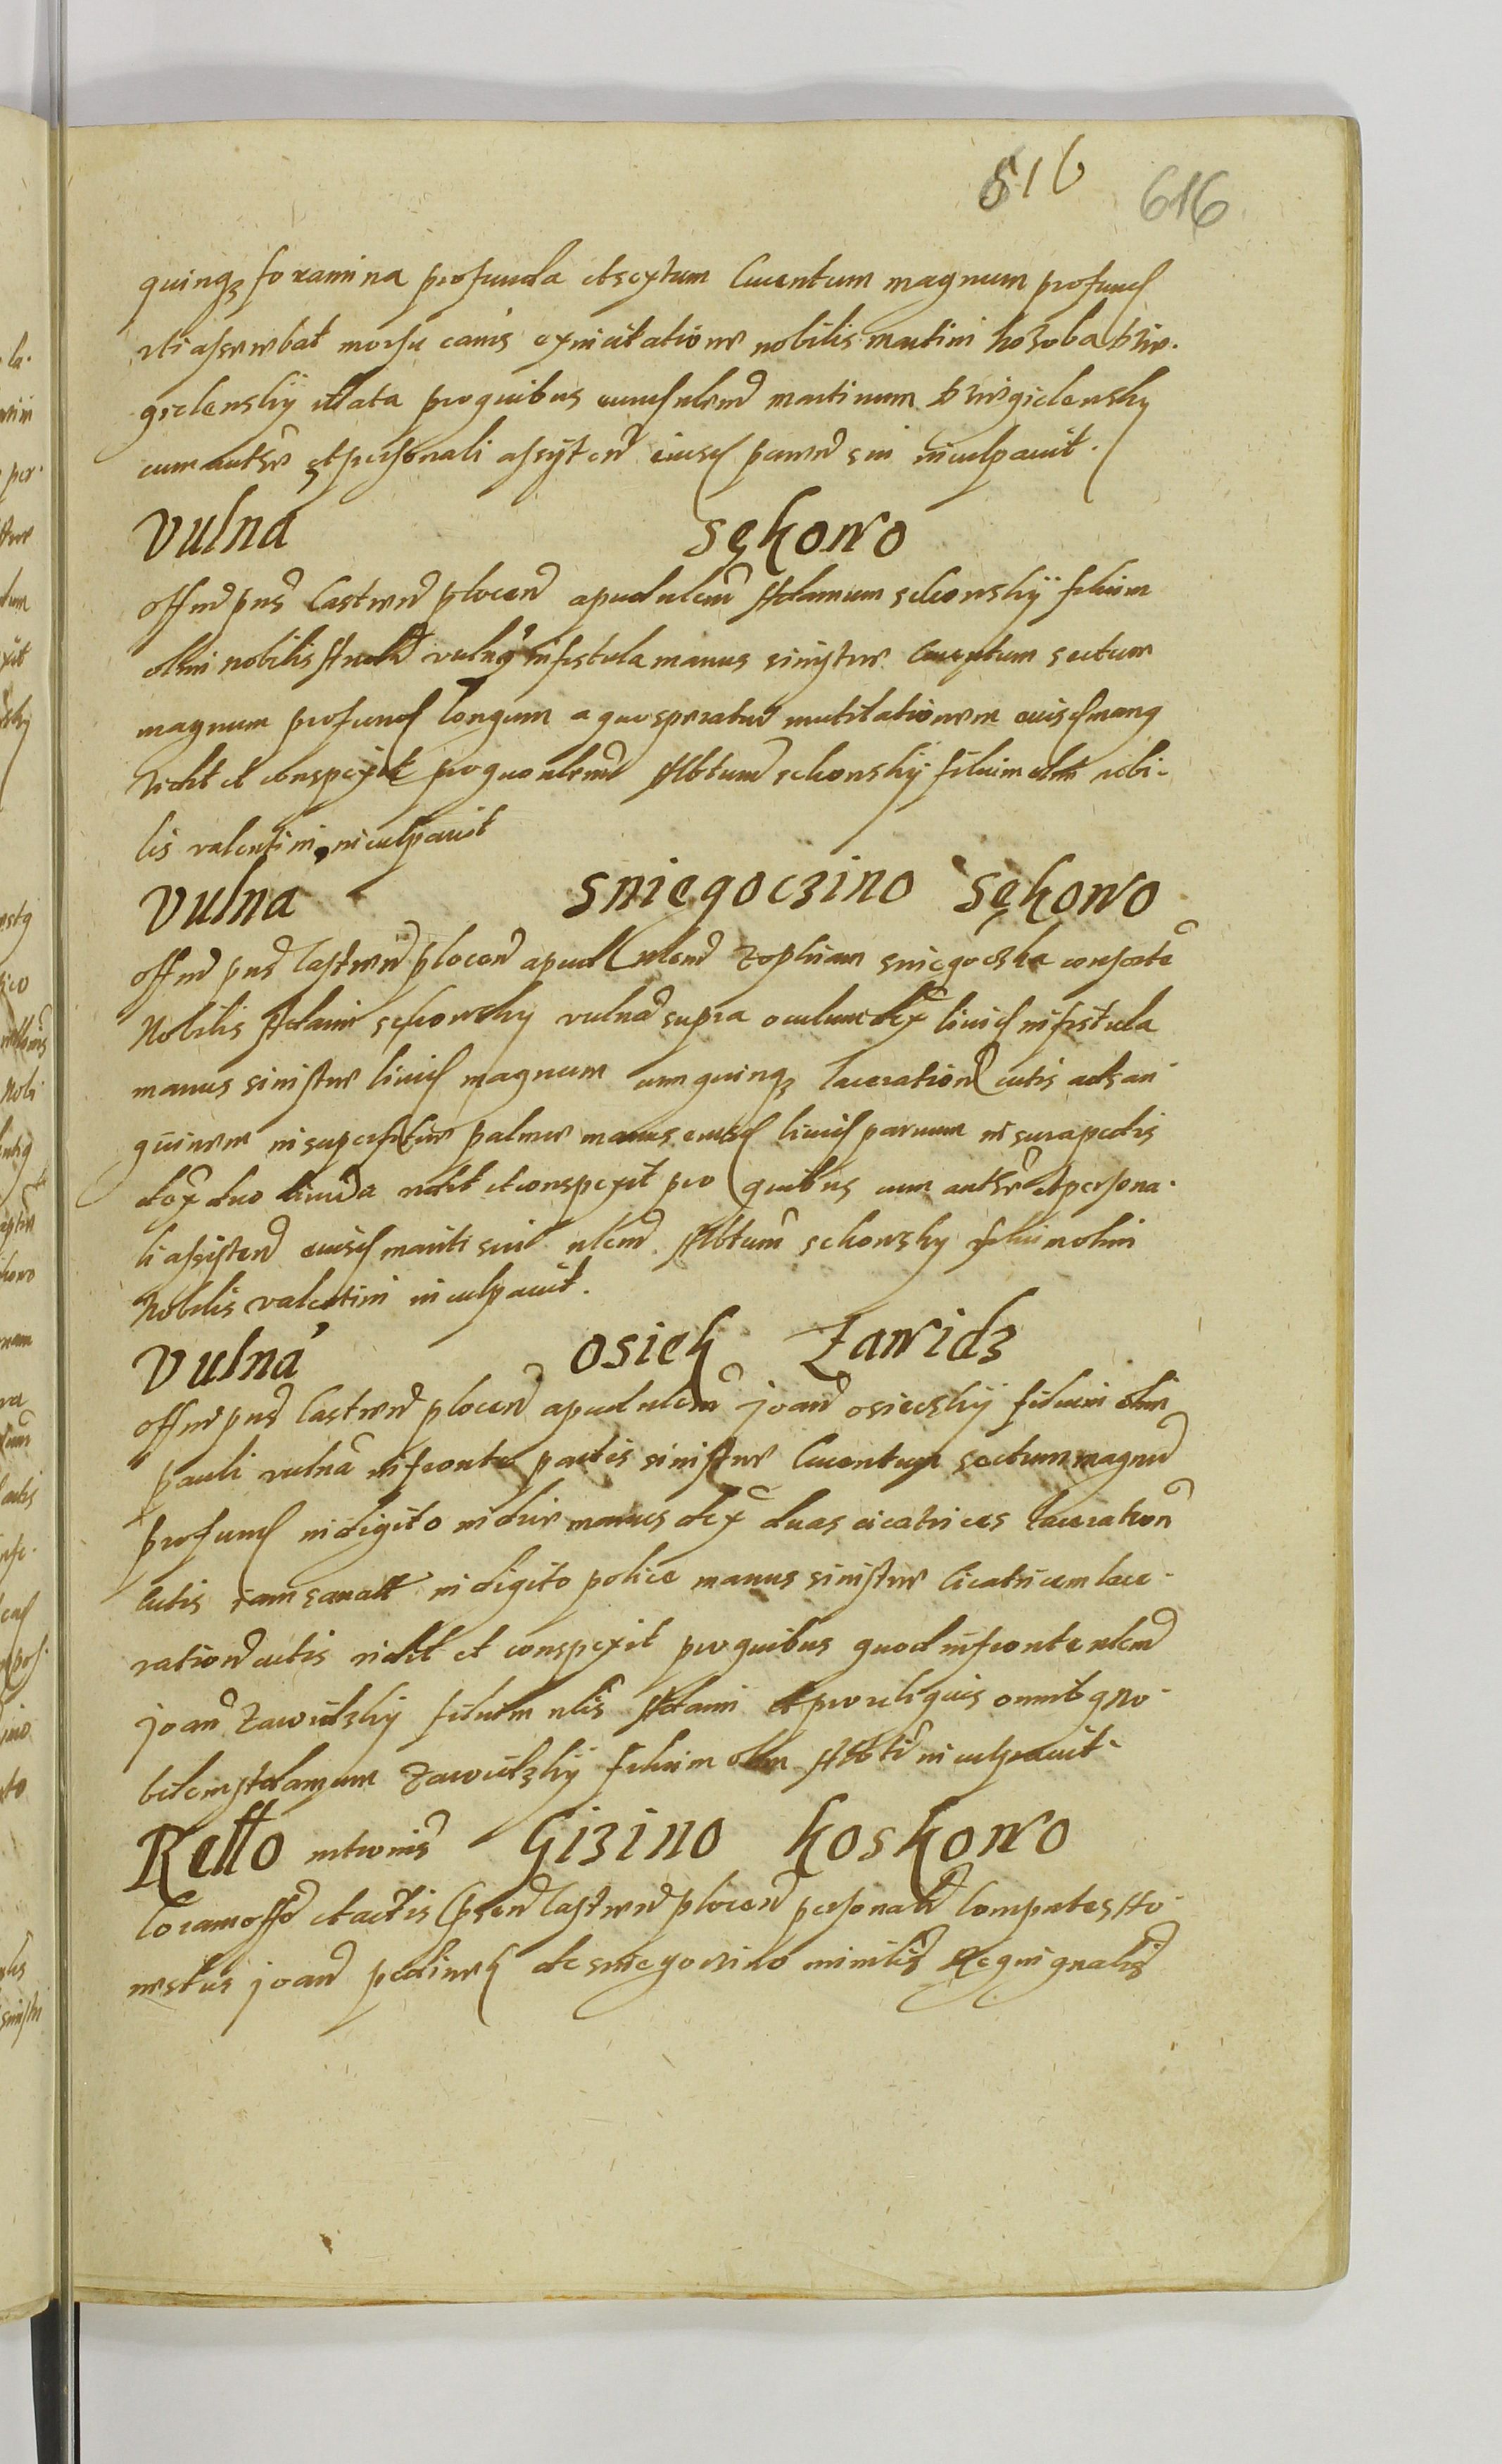 516 616
quinqꝫ foramina profunda et sextum Cruentum magnum profund
uti asserebat morsu canis ex incitatione nobilis martini kozoba brze-
gielensky illata pro quibus eund nlem martinum brzegielensky
cum autore et personali assisten eiusd paren sui inculpavit.
Vulna Sękowo
Offm pns Castren plocen apud nlem Adamum sekowsky filium
olim nobilis vulnq in fistula manus sinistre Cruentum sectum
magnum profund longum a quo speratur mutilationem euisd manq
vidit et conspexit pro quo nlem Albtum sekowsky filium olim nobi-
lis valentini inculpavit
Vulna Sniegoczino Sękowo
Offm pns Castren plocen apud nlem Zophiam sniegocska consorte
Nobilis Adami sekowsky vulna supra oculum dex livid in fistula
manus sinistre livid magnum cum quinqꝫ laceration cutis ad san-
guinem in superficie palme manus eiusd livid parvum in sura pedis
dex duo livida vidit et conspexit pro quibus cum autore et persona-
li assisten euisd mariti sui nlem Albtum sekowsky filium olim
Nobilis valentini inculpavit.
Vulna Osiek Zawidz
Offm pns Castren plocen apud nlem joan osieczky filium olim
pauli vulna in fronte partis sinistre Cruentum sectum magnu
profund in digito indice manus dex duas cicatrices laceration
Cutis iam sanatt in digito police manus sinistre Cicatricem lace-
ration cutis vidit et conspexit pro quibus quod in fronte nlem
joan Zawidzky filium nlis Adami et pro reliquis omnib q no-
bilem Adamum Zawidzky filium olim Albti inculpavit
Retto Gizino Koskowo
Coram offo et actis Castren plocen personalr Comparess Ho-
nestus joan de sniegocino minilis Regni gnalis